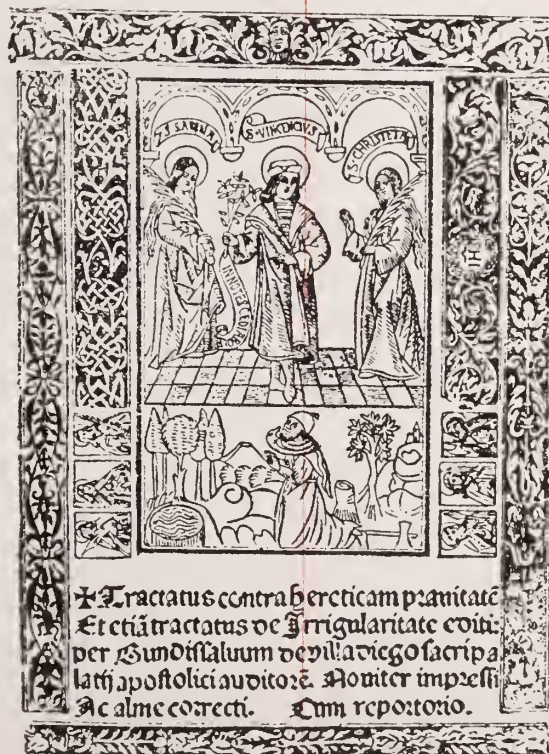 S SABINA S·VINCICIVS S·CHRISTETA
✠Tractatus contra hereticam prauitatē
Et etiā tractatus de Irrigularitate editi:
per Gundissaluum de villa diego sacri pa
latij apostolici auditorē. Nouiter impressi
Ac alme correcti. Cum reportorio.